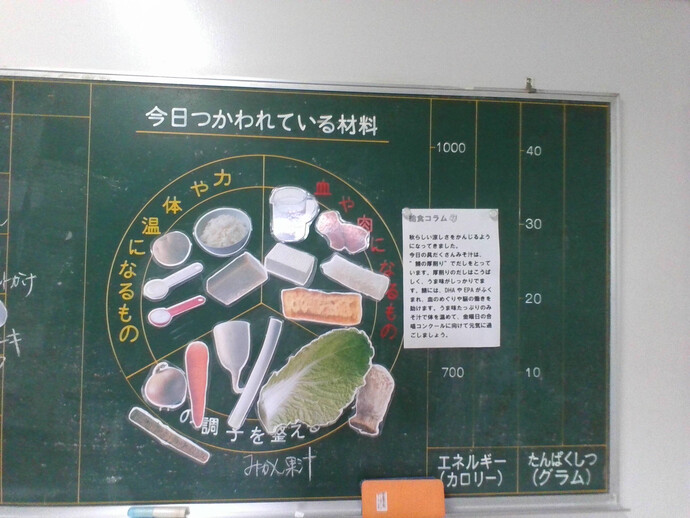 今日つかわれている材料
体や力
温になるもの
血や肉になるもの
の調子を整える
みかん果汁
1000
700
エネルギー
(カロリー)
40
30
20
10
たんぱくしつ
(グラム)
給食コラム
秋らしい涼しさをかんじるよう
になってきました。
今日の具だくさんみそ汁は、
"鯖の厚削り"でだしをとって
います。厚削りのだしはこうば
しく、うま味がしっかりでま
す。鯖には、DHAやEPAがふく
まれ、血のめぐりや脳の働きを
助けます。うま味たっぷりのみ
そ汁で体を温めて、金曜日の合
唱コンクールに向けて元気に過
ごしましょう。